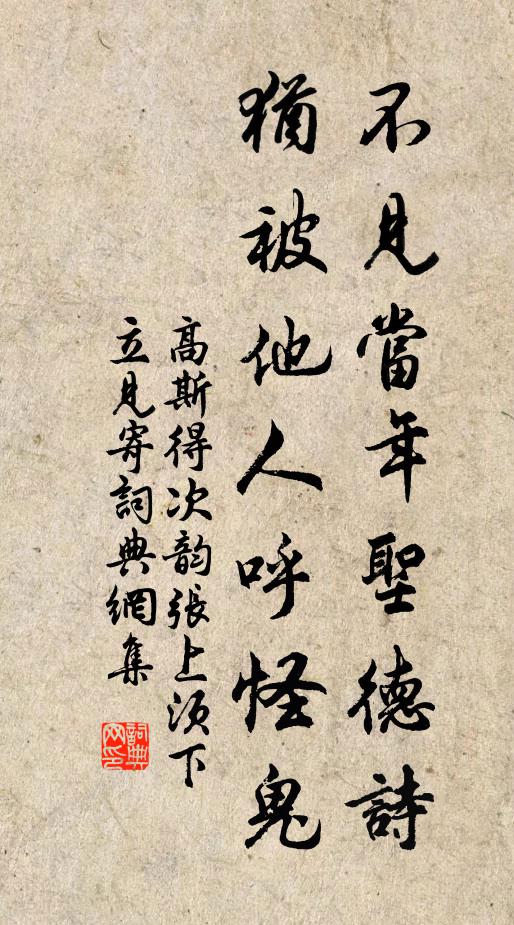 不見當年聖德詩
猶被他人呼怪鬼
高斯得次韵張上須下
立見寄詞典網集
詞典